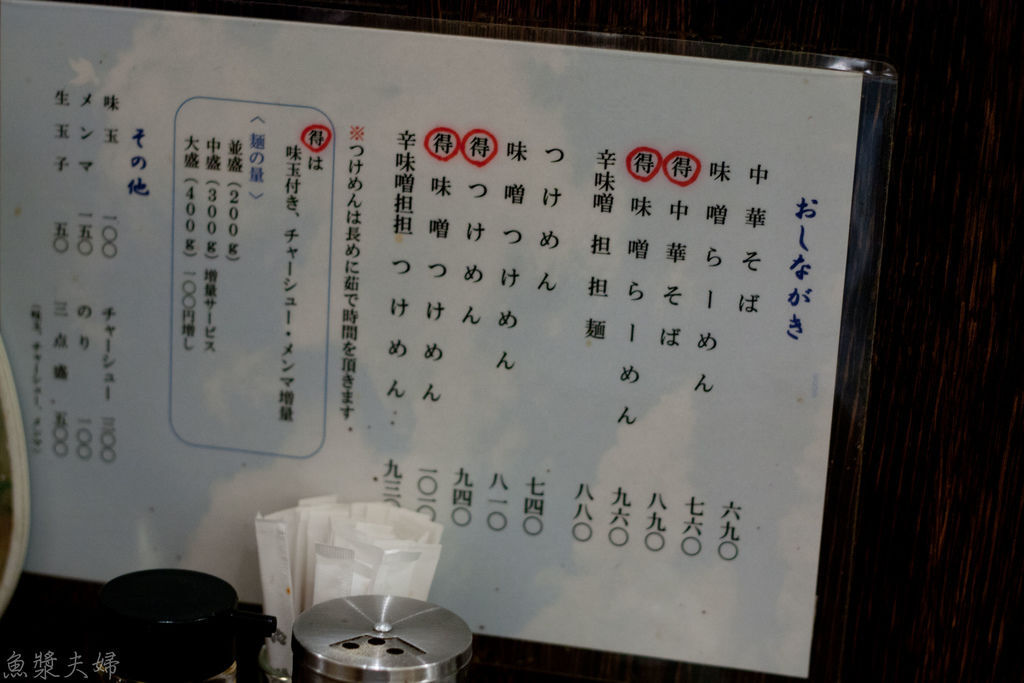 おしながき
中華そば 六九〇
味噌らーめん 七六〇
得 中華そば 八九〇
得 味噌らーめん 九六〇
辛味噌担担麺 八八〇
つけめん 七四〇
味噌つけめん 八一〇
得 つけめん 九四〇
得 味噌つけめん
辛味噌担担つけめん‥
※つけめんは長めに茹で時間を頂きます．
得は
味玉付き、チャーシュー・メンマ増量
〈麺の量〉
並盛（200g）
中盛（300g）増量サービス
大盛（400g）一〇〇円増し
その他
味玉 一〇〇 チャーシュー 三〇〇
メンマ 一五〇 のり 一〇〇
生玉子 五〇 三点盛 五〇〇
（味玉、チャーシュー、メンマ）
魚漿夫婦